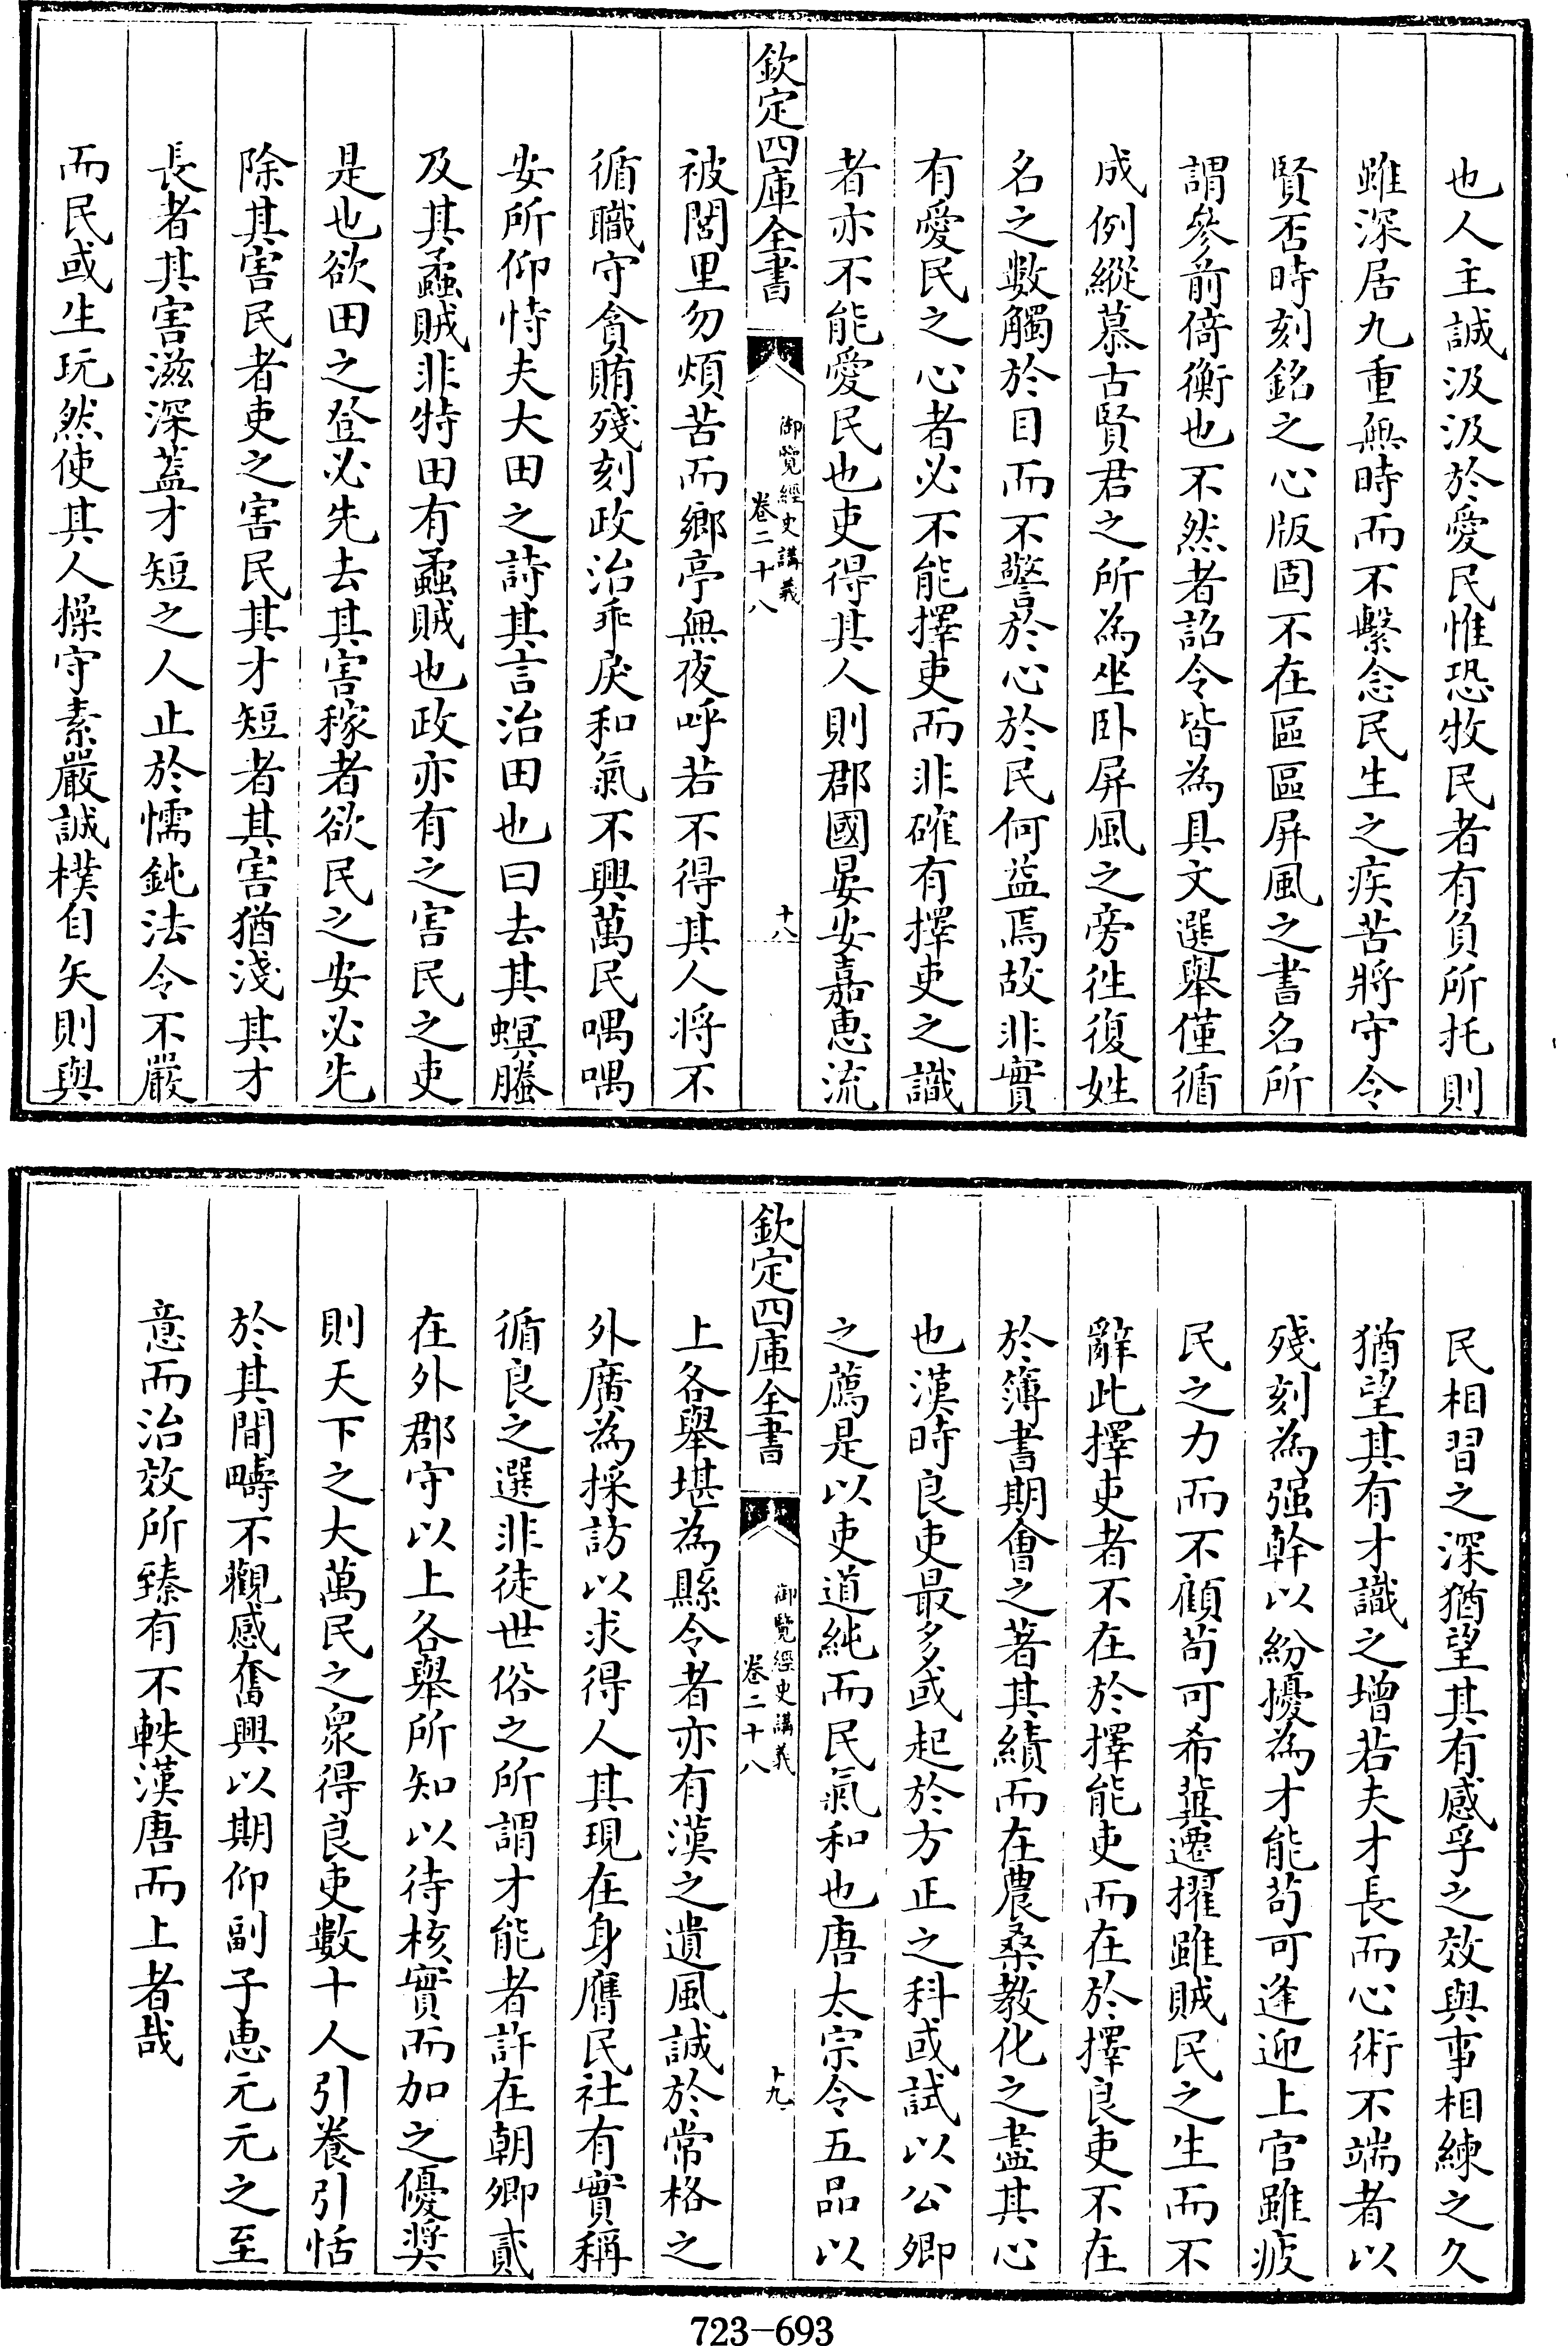 也人主誠汲汲於愛民惟恐牧民者有負所托則
雖深居九重無時而不繫念民生之疾苦將守令
賢否時刻銘之心版固不在區區屏風之書名所
謂參前倚衡也不然者詔令皆為具文選舉僅循
成例縱慕古賢君之所為坐卧屏風之旁徃復姓
名之數觸於目而不警於心於民何益焉故非實
有愛民之心者必不能擇吏而非確有擇吏之識
者亦不能愛民也吏得其人則郡國晏安嘉惠流
欽定四庫全書
御覽經史講義
卷二十八
十八
被閭里勿煩苦而鄉亭無夜呼若不得其人將不
循職守貪賄殘刻政治乖戾和氣不興萬民喁喁
安所仰恃夫大田之詩其言治田也曰去其螟螣
及其蟊賊非特田有蟊賊也政亦有之害民之吏
是也欲田之登必先去其害稼者欲民之安必先
除其害民者吏之害民其才短者其害猶淺其才
長者其害滋深蓋才短之人止於懦鈍法令不嚴
而民或生玩然使其人操守素嚴誠樸自矢則與
民相習之深猶望其有感孚之效與事相練之久
猶望其有才識之增若夫才長而心術不端者以
殘刻為强幹以紛擾為才能苟可逢迎上官雖疲
民之力而不顧苟可希冀遷擢雖賊民之生而不
辭此擇吏者不在於擇能吏而在於擇良吏不在
於簿書期會之著其績而在農桑教化之盡其心
也漢時良吏最多或起於方正之科或試以公卿
之薦是以吏道純而民氣和也唐太宗令五品以
欽定四庫全書
御覽經史講義
卷二十八
十九
上各舉堪為縣令者亦有漢之遺風誠於常格之
外廣為採訪以求得人其現在身膺民社有實稱
循良之選非徒世俗之所謂才能者許在朝卿貳
在外郡守以上各舉所知以待核實而加之優奬
則天下之大萬民之衆得良吏數十人引養引恬
於其間疇不觀感奮興以期仰副子惠元元之至
意而治效所臻有不軼漢唐而上者哉
723-693